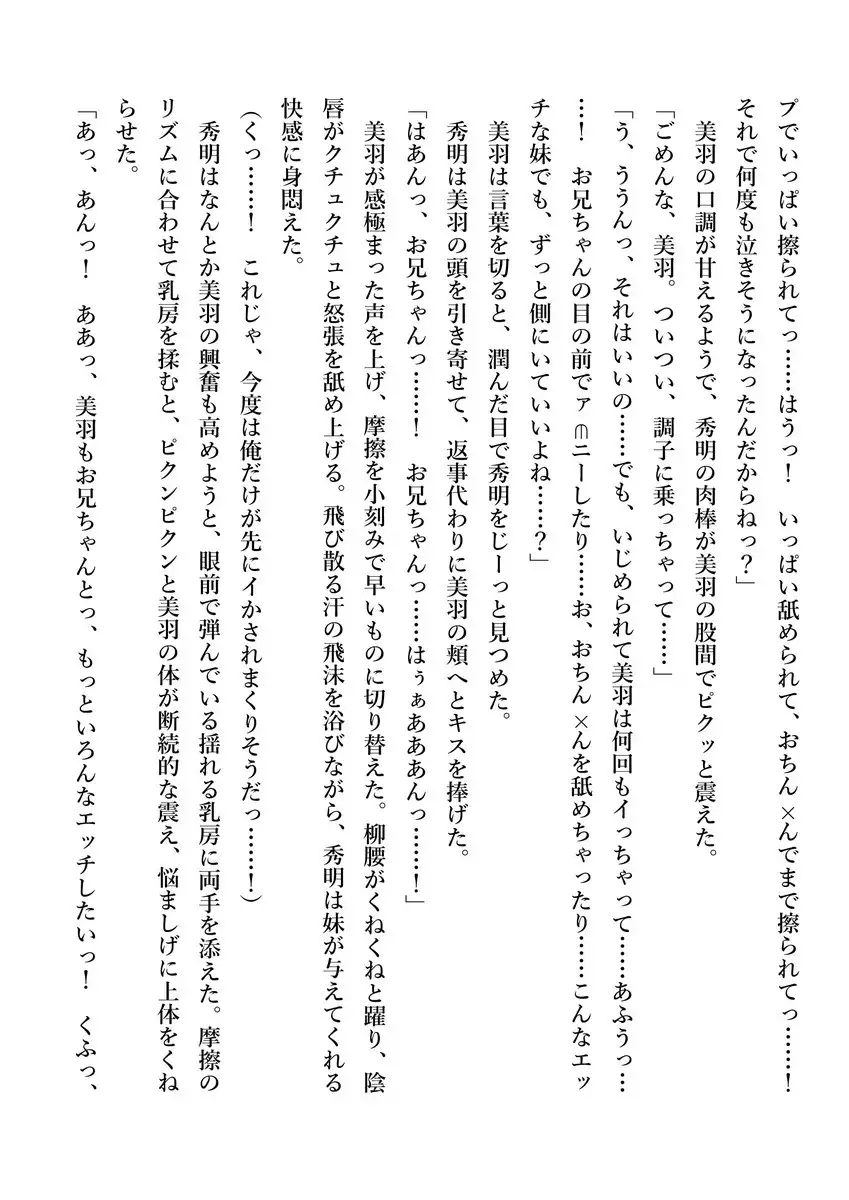 プでいっぱい擦られてっ……はうっ！　いっぱい舐められて、おちん×んでまで擦られてっ……！
それで何度も泣きそうになったんだからねっ？」
　美羽の口調が甘えるようで、秀明の肉棒が美羽の股間でピクッと震えた。
「ごめんな、美羽。ついつい、調子に乗っちゃって……」
「う、ううんっ、それはいいの……でも、いじめられて美羽は何回もイっちゃって……あふうっ…
…！　お兄ちゃんの目の前でァ∈ニーしたり……お、おちん×んを舐めちゃったり……こんなエッ
チな妹でも、ずっと側にいていいよね……？」
　美羽は言葉を切ると、潤んだ目で秀明をじーっと見つめた。
　秀明は美羽の頭を引き寄せて、返事代わりに美羽の頬へとキスを捧げた。
「はあんっ、お兄ちゃんっ……！　お兄ちゃんっ……はぅぁあああんっ……！」
　美羽が感極まった声を上げ、摩擦を小刻みで早いものに切り替えた。柳腰がくねくねと躍り、陰
唇がクチュクチュと怒張を舐め上げる。飛び散る汗の飛沫を浴びながら、秀明は妹が与えてくれる
快感に身悶えた。
（くっ……！　これじゃ、今度は俺だけが先にイかされまくりそうだっ……！）
　秀明はなんとか美羽の興奮も高めようと、眼前で弾んでいる揺れる乳房に両手を添えた。摩擦の
リズムに合わせて乳房を揉むと、ピクンピクンと美羽の体が断続的な震え、悩ましげに上体をくね
らせた。
「あっ、あんっ！　ああっ、美羽もお兄ちゃんとっ、もっといろんなエッチしたいっ！　くふっ、